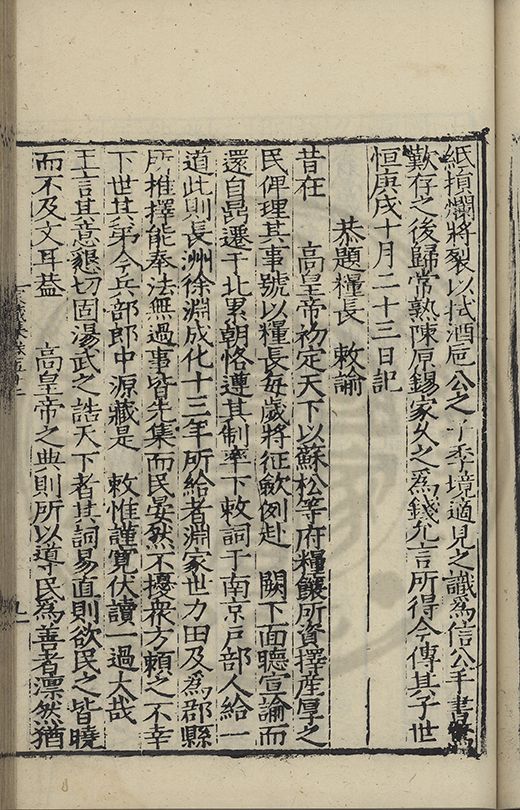 紙損爛將裂以拭酒卮公之子季境適見之識為信公手書
歎存之後歸常熟陳原錫家久之為錢允言所得今傳其子世
恒庚戌十月二十三日記
恭題糧長 敕諭
昔在 高皇帝初定天下以蘇松等府糧饟所資擇産厚之
民俾理其事號以糧長每歲將征歛例赴 闕下面聽宣諭而
還自鼎遷于北累朝恪遵其制率下敕詞于南京戸部人給一
道此則長洲徐淵成化十三年所給者淵家世力田及為郡縣
所推擇能奉法無過事皆先集而民晏然不擾衆方頼之不幸
下世其弟今兵部郎中源藏是 敕惟謹寬伏讀一過大哉
王言其意懇切固湯武之誥天下者其詞易直則欲民之皆曉
而不及文耳葢 高皇帝之典則所以導民為善者凛然猶